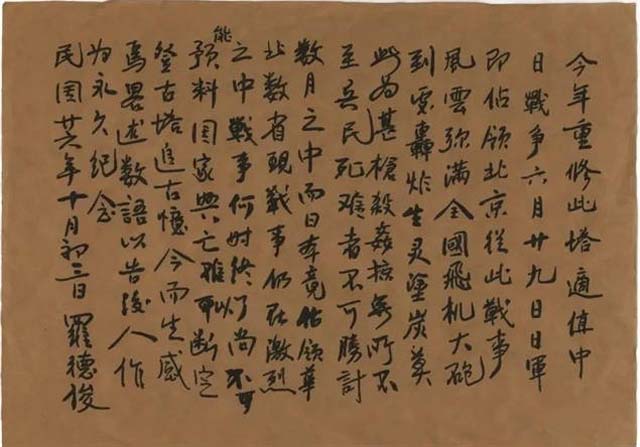 今年重修此塔適值中
日戰爭六月廿九日日軍
即佔領北京從此戰事
風雲弥满全國飛机大砲
到處轟炸生灵塗炭莫
此为甚槍殺姦掠無所不
至兵民死难者不可勝計
数月之中而日本竟佔領華
北数省現戰事仍在激烈
之中戰事何时终了尚不可
能预料国家興亡难以断定
登古塔追古憶今而生感
焉畧述数語以告後人作
为永久纪念
民国廿六年十月初三日 羅德俊